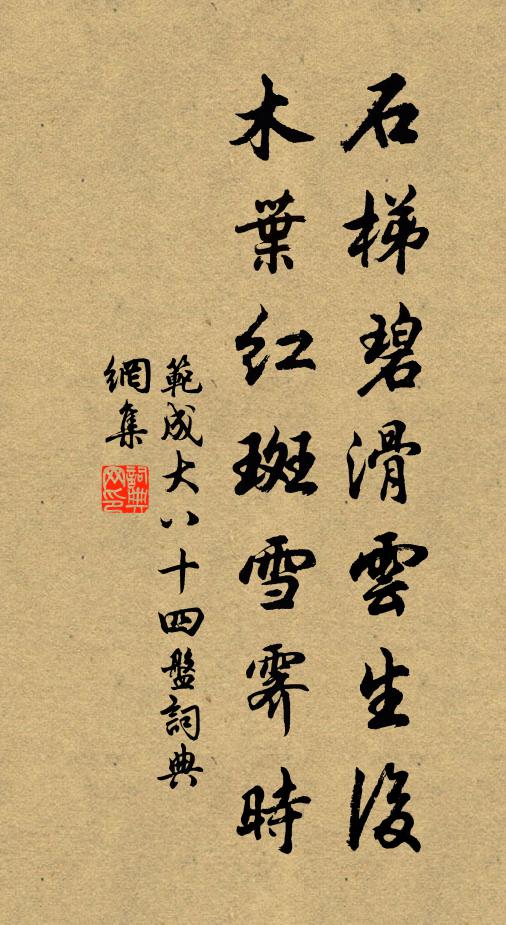 石梯碧滑雲生後
木葉紅斑雪霽時
範成大八十四盤詞典
網集
詞典